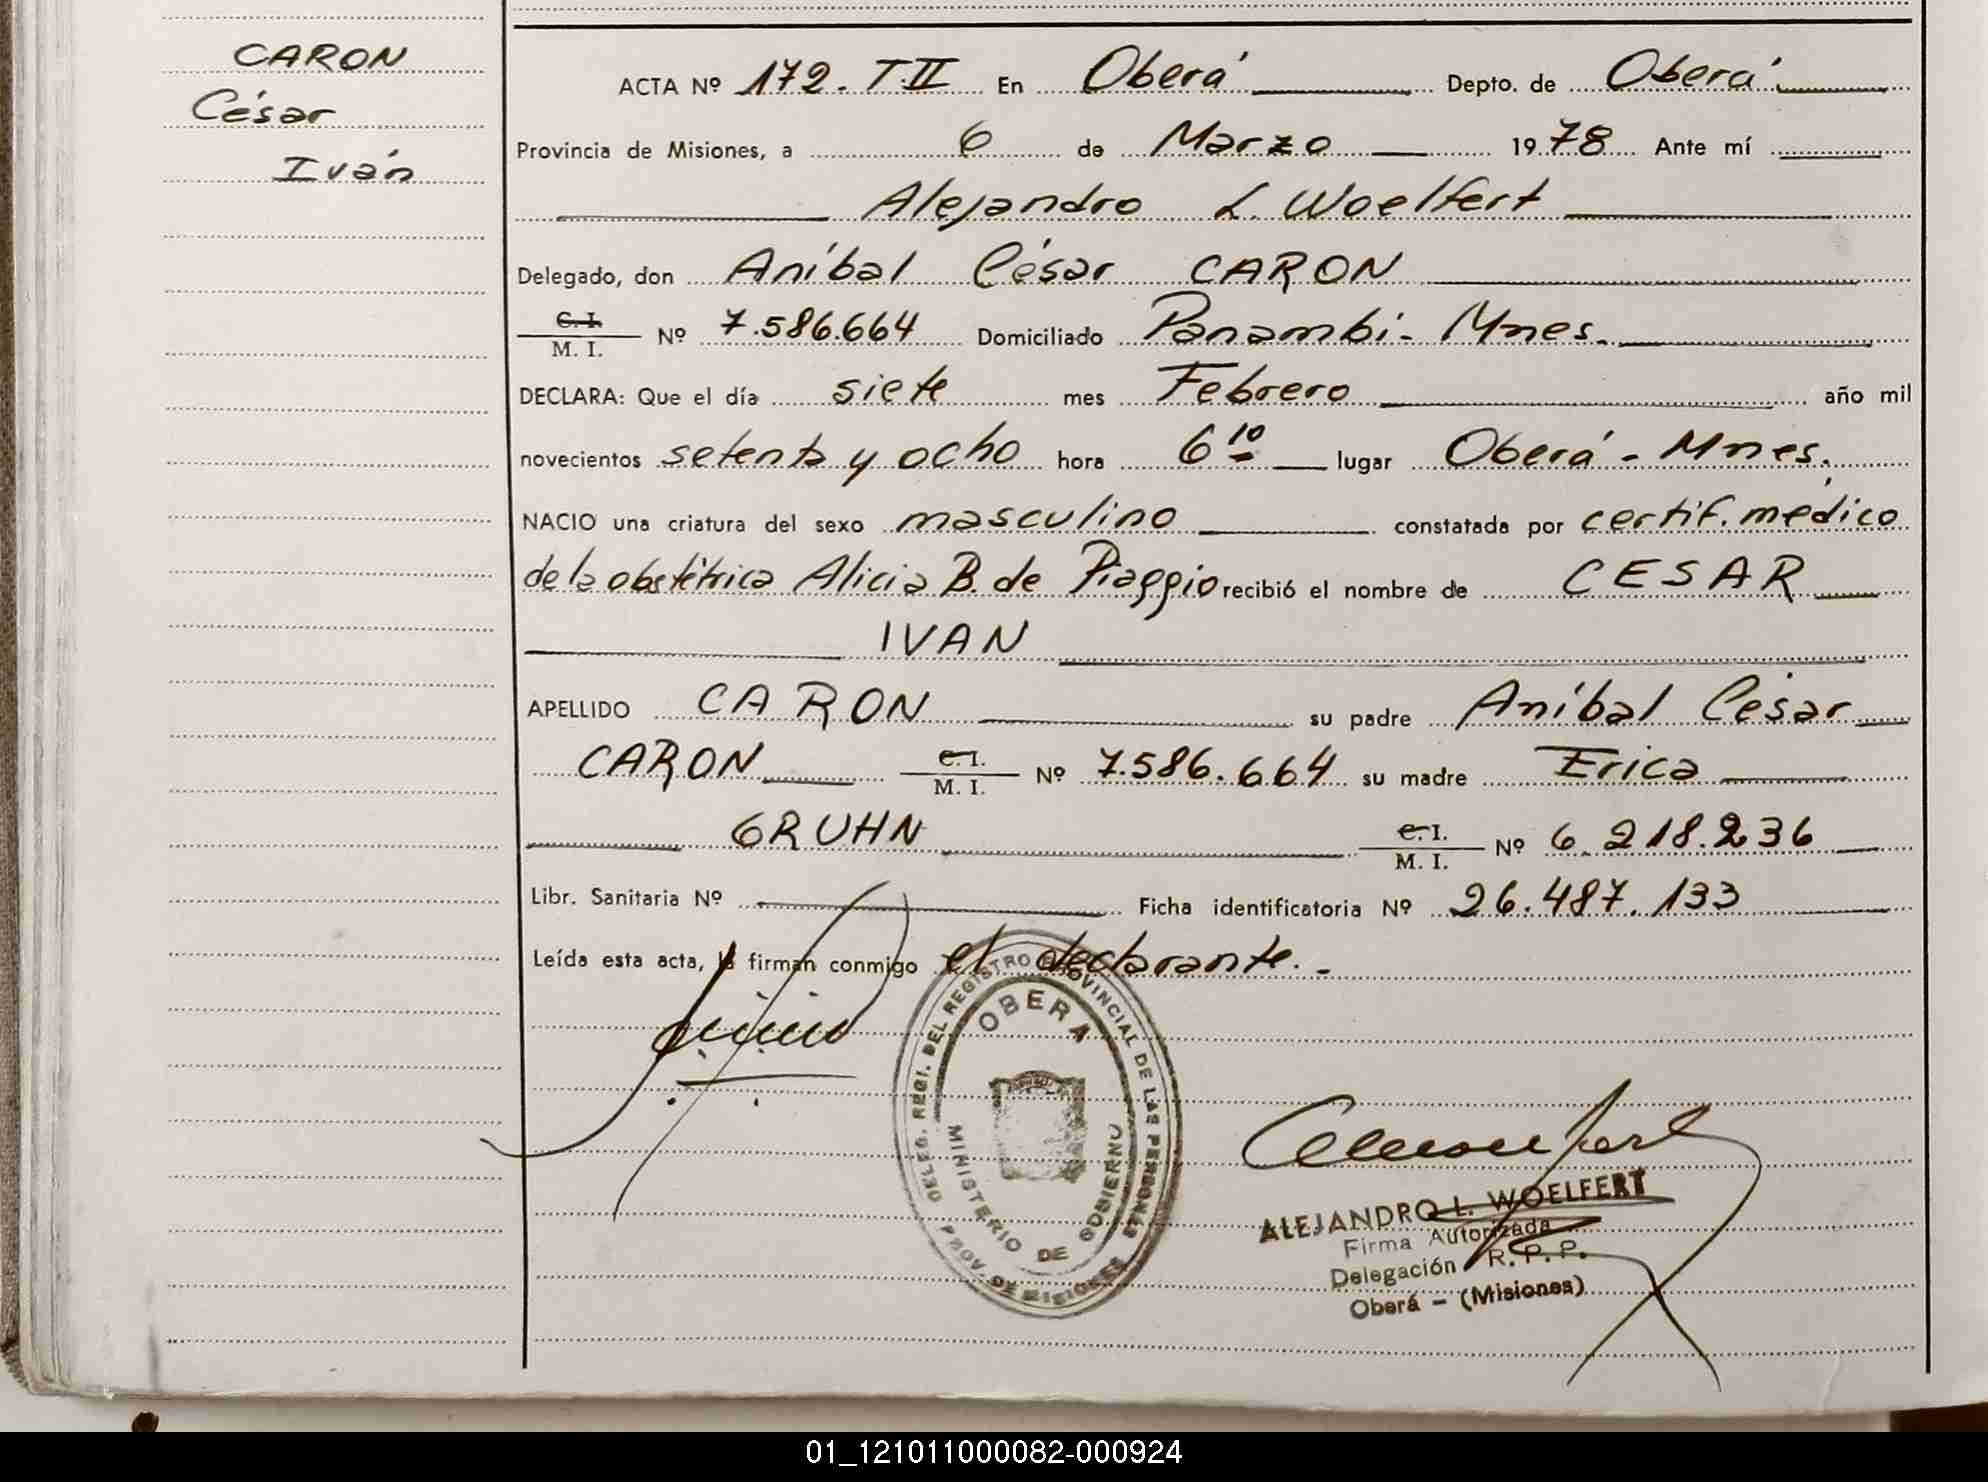 CARON
César
Iván
ACTA Nº 172. T. II En Oberá Depto. de Oberá
Provincia de Misiones, a 6 de Marzo 1978 Ante mí
Alejandro L. Woelfert
Delegado, don Aníbal César CARON
C. I. / M. I. Nº 7.586.664 Domiciliado Panambi - Mnes.
DECLARA: Que el día siete mes Febrero año mil
novecientos setenta y ocho hora 6 10 lugar Oberá - Mnes.
NACIO una criatura del sexo masculino constatada por certif. médico
de la obstétrica Alicia B. de Piaggio recibió el nombre de CESAR
IVAN
APELLIDO CARON su padre Aníbal César
CARON C. I. / M. I. Nº 7.586.664 su madre Erica
GRUHN C. I. / M. I. Nº 6.218.236
Libr. Sanitaria Nº Ficha identificatoria Nº 26.487.133
Leída esta acta, la firman conmigo el declarante.
DELEG. REGI. DEL REGISTRO PROVINCIAL DE LAS PERSONAS
OBERA
MINISTERIO DE GOBIERNO
PROV. DE MISIONES
ALEJANDRO L. WOELFERT
Firma Autorizada
Delegación R. P. P.
Oberá - (Misiones)
01_121011000082-000924